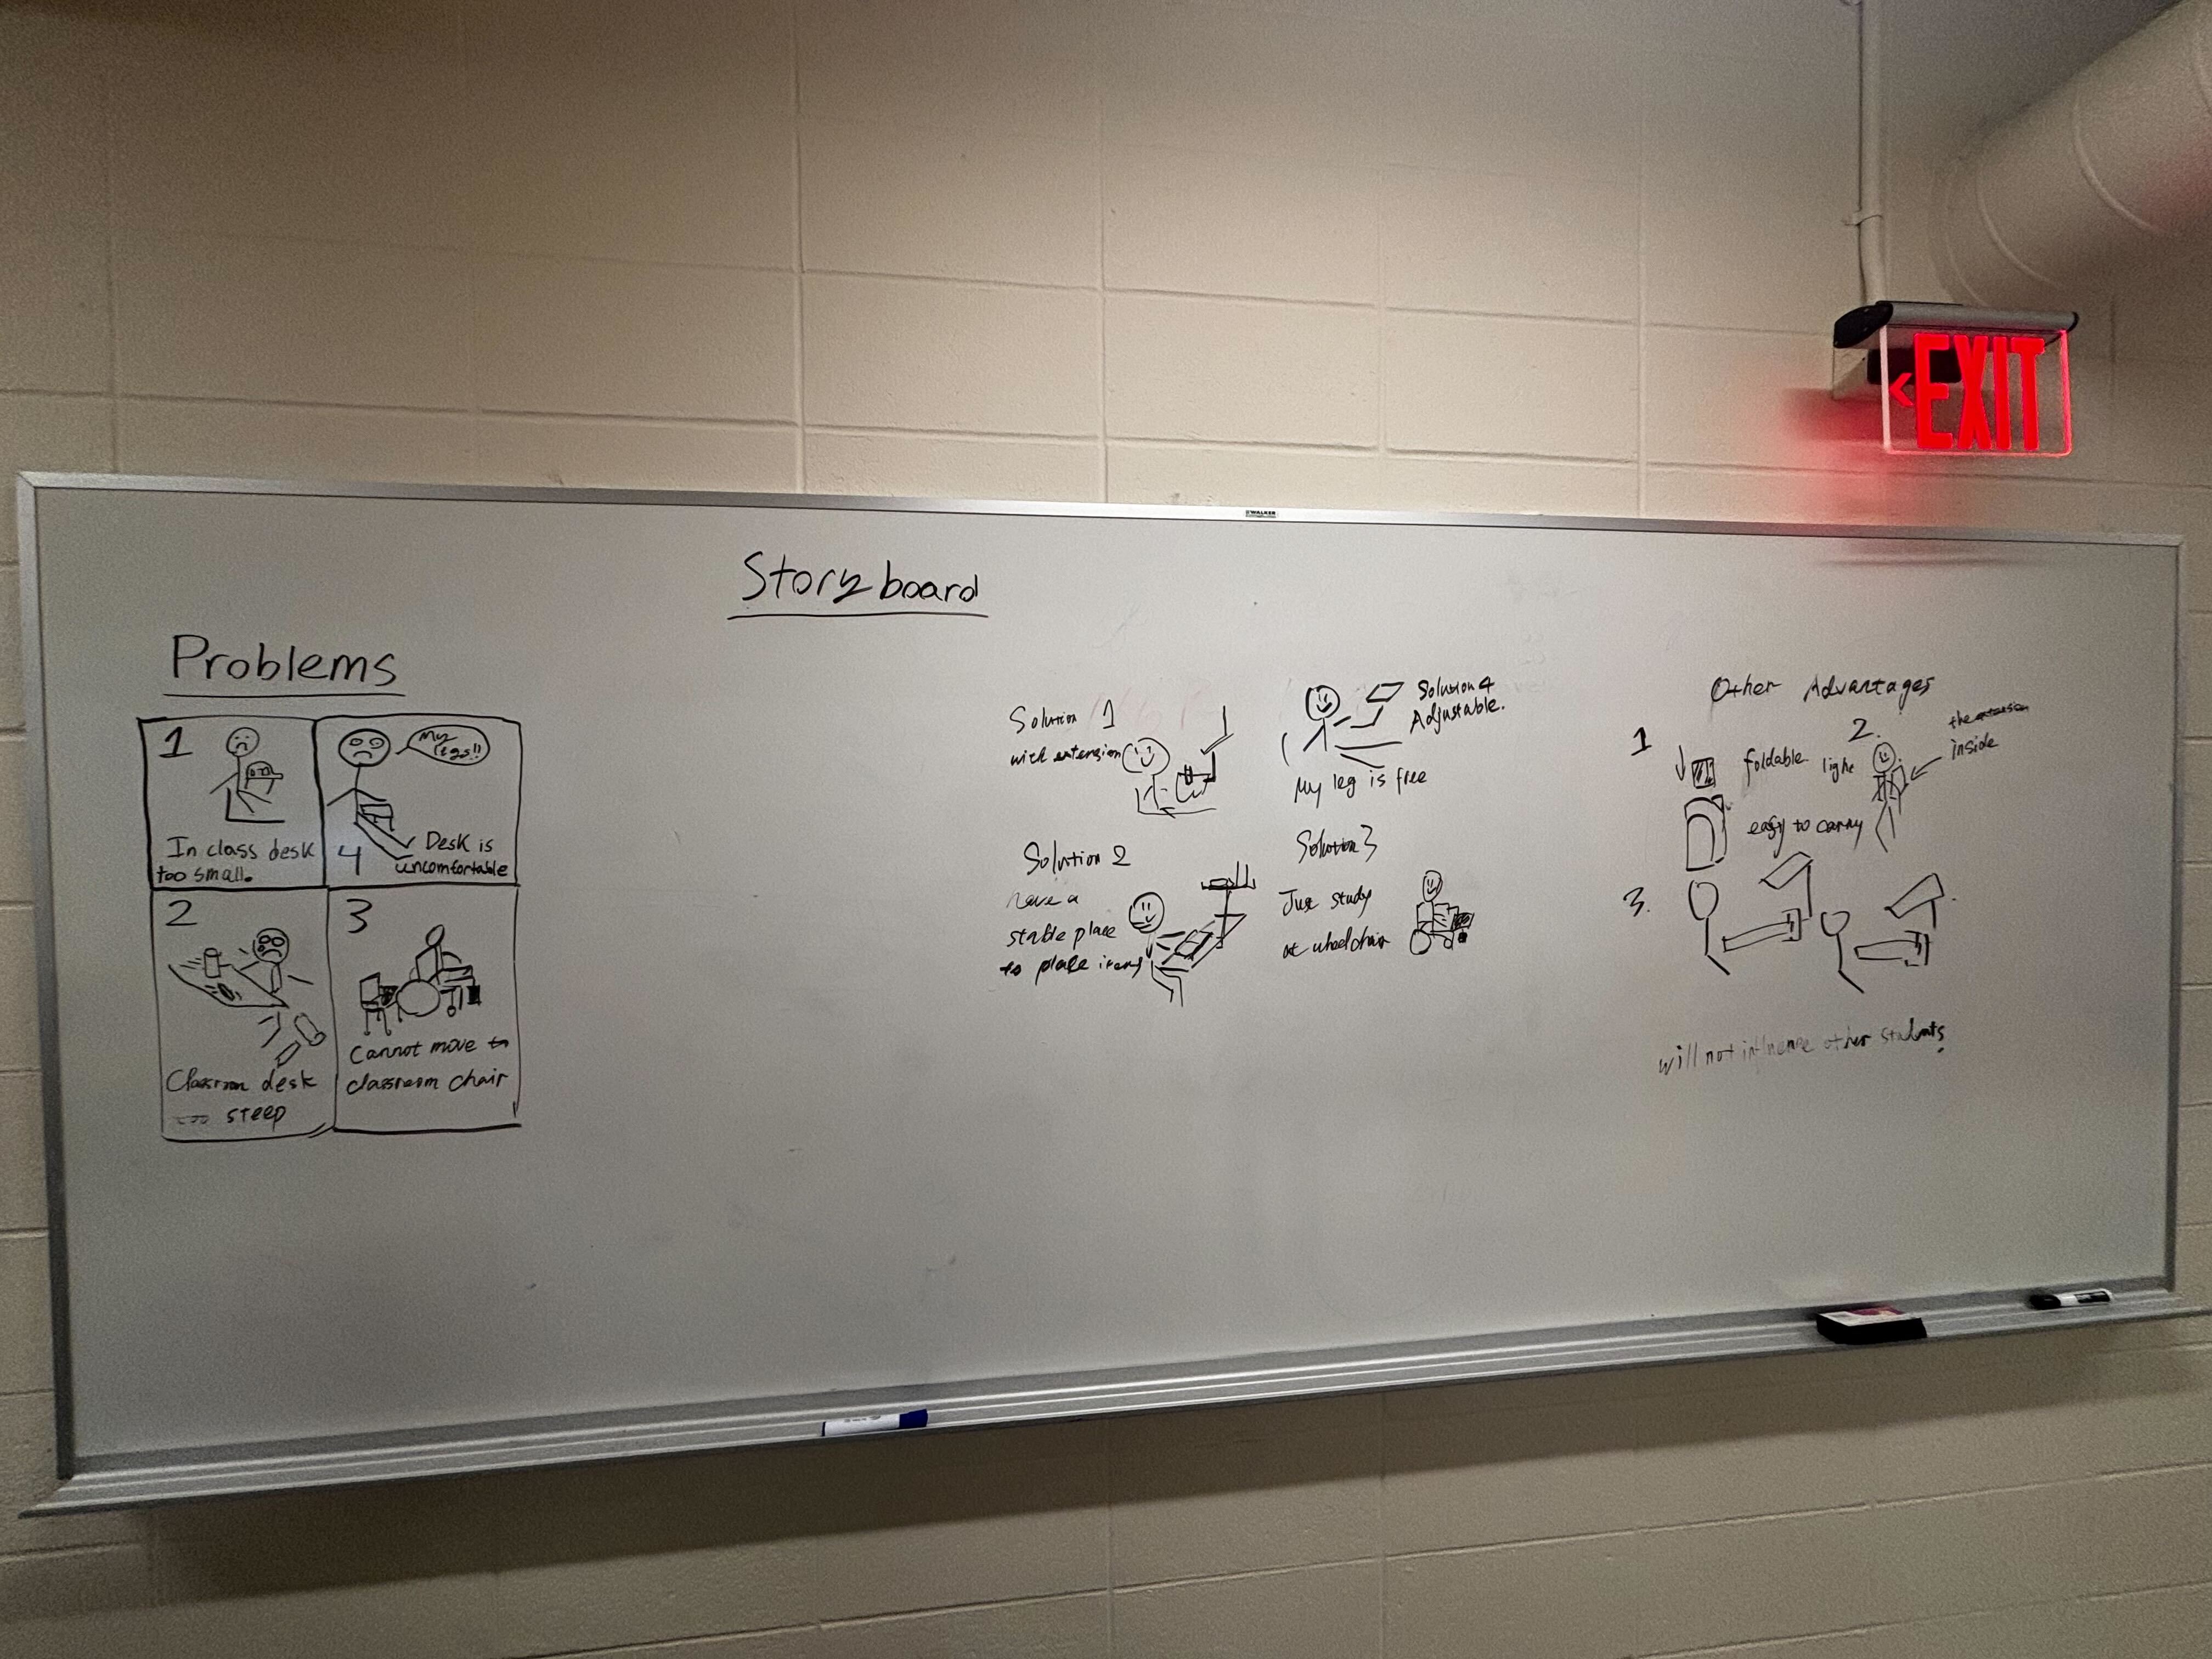 <EXIT
WALKER
Storyboard
Problems
1
In class desk
too small.
My
legs!!
4
Desk is
uncomfortable
2
Classroom desk
too steep
3
Cannot move to
classroom chair
Solution 1
with extension
Solution 4
Adjustable.
My leg is free
Solution 2
have a
stable place
to place items
Solution 3
Just study
at wheelchair
Other Advantages
1
foldable
easy to carry
2.
light
the extension
inside
3.
will not influence other students.